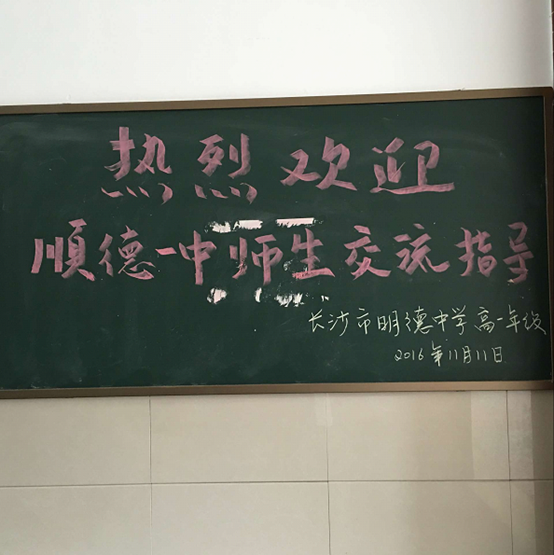 热烈欢迎
順德一中师生交流指导
长沙市明德中学高一年级
2016年11月11日